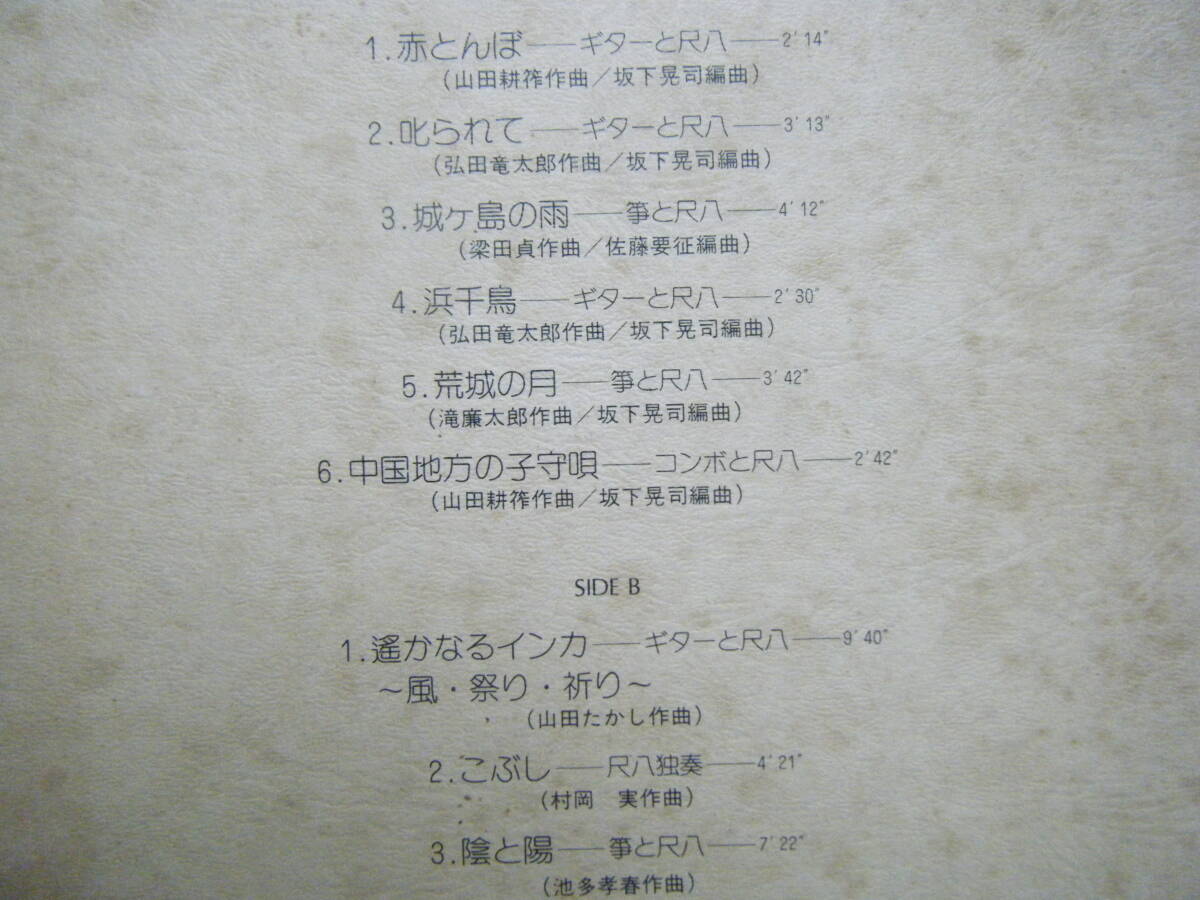 1.赤とんぼ──ギターと尺八──2'14"
(山田耕筰作曲/坂下晃司編曲)
2.叱られて──ギターと尺八──3'13"
(弘田竜太郎作曲/坂下晃司編曲)
3.城ヶ島の雨──箏と尺八──4'12"
(梁田貞作曲/佐藤要征編曲)
4.浜千鳥──ギターと尺八──2'30"
(弘田竜太郎作曲/坂下晃司編曲)
5.荒城の月──箏と尺八──3'42"
(滝廉太郎作曲/坂下晃司編曲)
6.中国地方の子守唄──コンボと尺八──2'42"
(山田耕筰作曲/坂下晃司編曲)
SIDE B
1.遙かなるインカ──ギターと尺八──9'40"
〜風・祭り・祈り〜
(山田たかし作曲)
2.こぶし──尺八独奏──4'21"
(村岡 実作曲)
3.陰と陽──箏と尺八──7'22"
(池多孝春作曲)